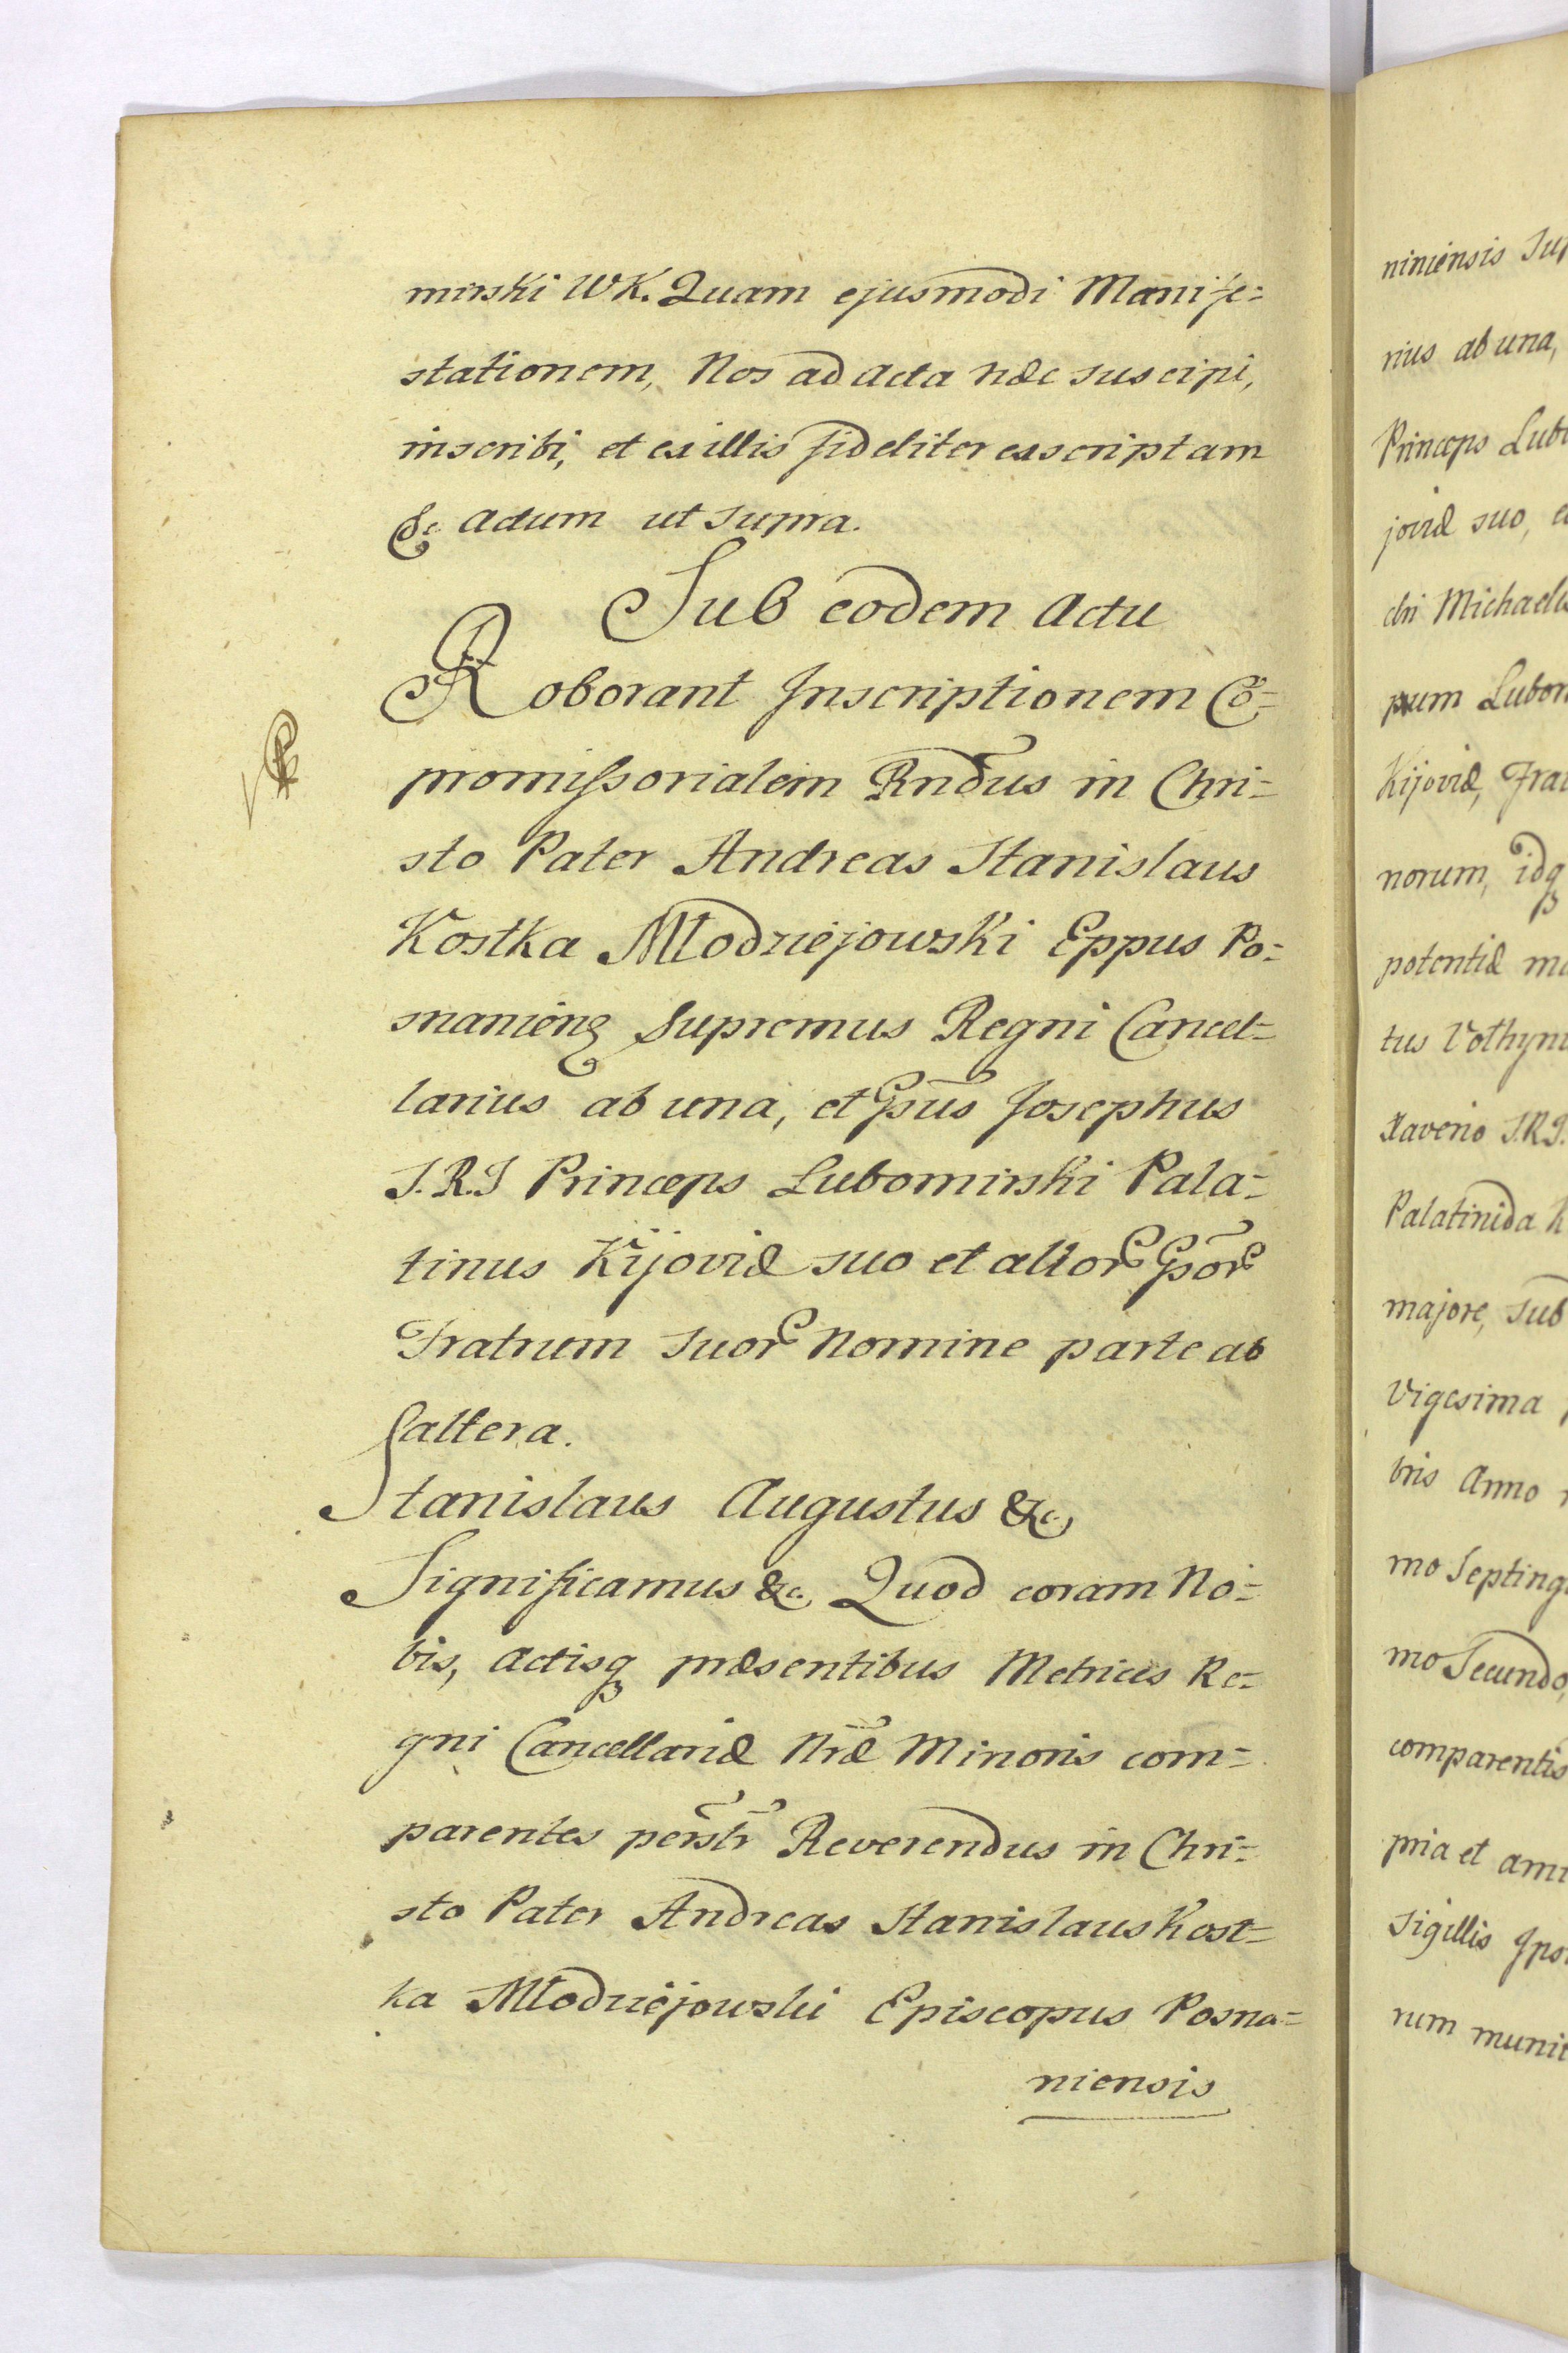 mirski WK. Quam ejusmodi Manife=
stationem, Nos ad acta hæc suscipi,
inscribi, et ex illis fideliter exscriptam
&c actum ut supra.
Sub eodem actu
Roborant Inscriptionem Cō=
promissorialem Rndus in Chri=
sto Pater Andreas Stanislaus
Kostka Młodziejowski Eppus Po=
snanien Supremus Regni Cancel=
larius ab una, et Josephus
S.R.I Princeps Lubomirski Pala=
tinus Kijoviæ suo et alior
Fratrum suor Nomine parte ab
altera.
Stanislaus Augustus &c
Significamus &c. Quod coram No=
bis, actisq præsentibus Metrices Re=
gni Cancellariæ Nræ Minoris com=
parentes personlr Reverendus in Chri=
sto Pater Andreas Stanislaus Kost=
ka Młodziejowski Episcopus Posna=
niensis
niniensis Sup
rius ab una,
Princeps Lub
joviæ suo, e
chi Michaelis
pum Lubom
Kijoviæ, Frat
norum, idq
potentiæ ma
tus Volhyni
Xaverio S.R.I.
Palatinida K
majore, sub
Vigesima
bris Anno
mo Septing
mo Secundo,
comparentis
pria et ami
Sigillis Ipso
rum munit